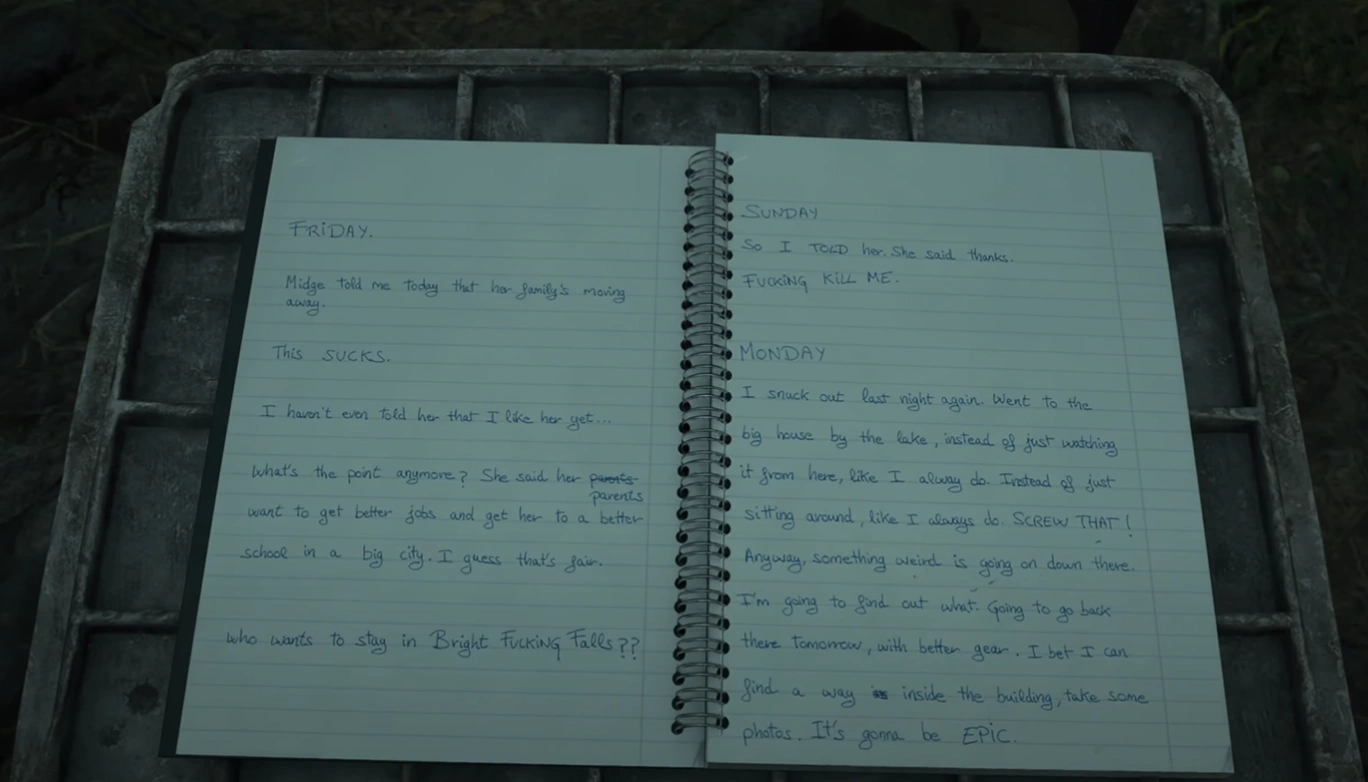 FRIDAY.
Midge told me today that her family's moving
away.
This SUCKS.
I haven't even told her that I like her yet...
What's the point anymore? She said her parents
parents
want to get better jobs and get her to a better
school in a big city. I guess that's fair.
who wants to stay in Bright FUCKING Falls??
SUNDAY
So I TOLD her. She said thanks.
FUCKING KILL ME.
MONDAY
I snuck out last night again. Went to the
big house by the lake, instead of just watching
it from here, like I alway do. Instead of just
sitting around, like I always do. SCREW THAT!
Anyway, something weird is going on down there.
I'm going to find out what. Going to go back
there tomorrow, with better gear. I bet I can
find a way inside the building, take some
photos. It's gonna be EPIC.